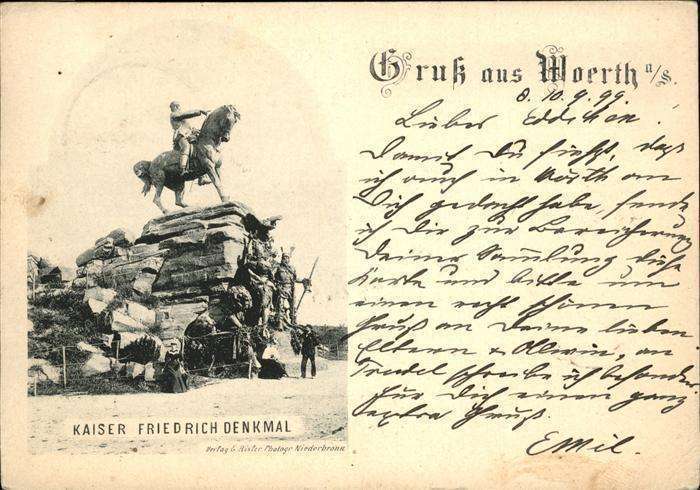 Gruß aus Woerth a/S.
d. 10.9.99.
Lieber Eddichen!
Damit Du siehst, daß
ich auch in Wörth an
Dich gedacht habe, sende
ich Dir zur Bereicherung
Deiner Sammlung diese
Karte und bitte um
einen recht schönen
Gruß an Deine lieben
Eltern & Alwin, an
schreibe ich besonders.
Für Dich einen ganz
extra Gruß.
Emil.
KAISER FRIEDRICH DENKMAL
Verlag G. Rixler Photogr. Niederbronn